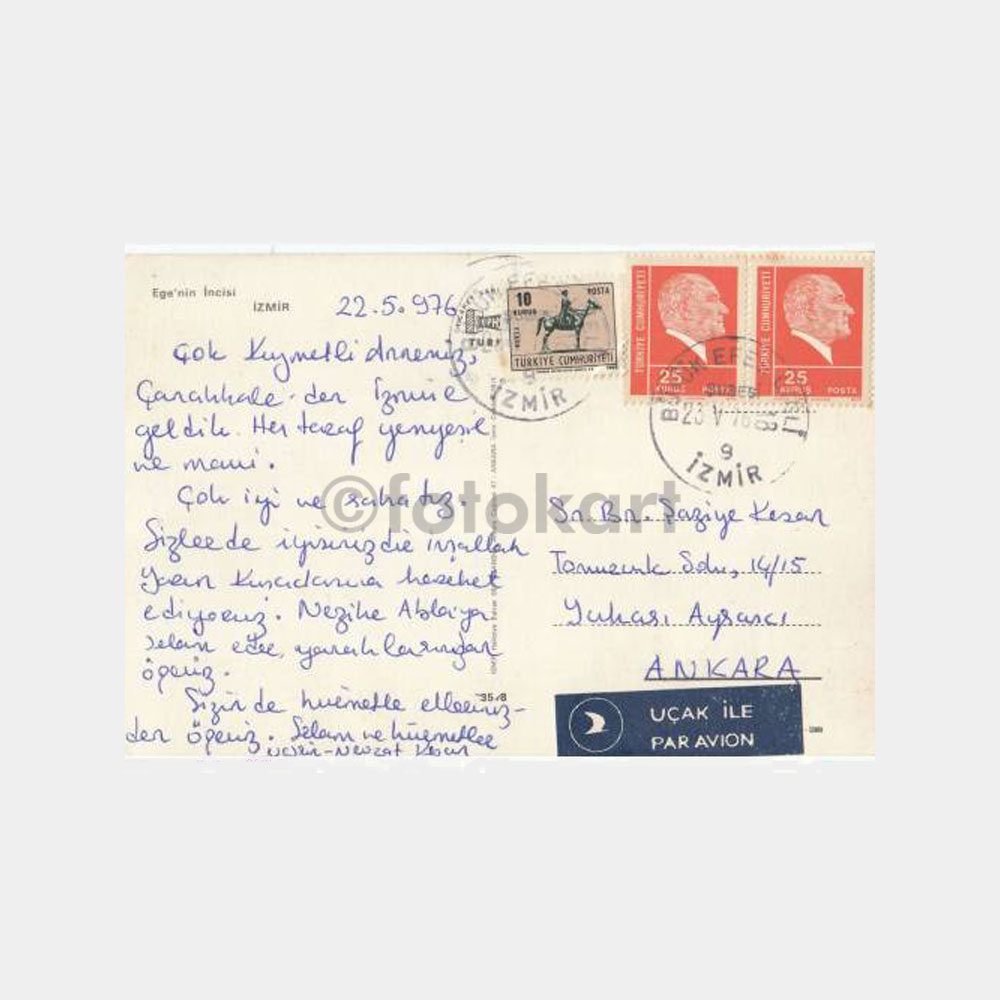 Ege'nin İncisi
İZMİR
22.5.976
Çok Kıymetli Anneniz,
Çanakkale-den İzmire
geldik. Her taraf yemyeşil
ve mavi.
Çok iyi ve rahatız.
Sizlerde iyisinizdir inşallah
Yarın Kuşadasına hareket
ediyoruz. Nezihe Ablaya
selam eder, yanaklarından
öperiz.
Sizin de hürmetle elleriniz-
den öperiz. Selam ve hürmetler
Nevzat Kesar
35/8
10
KURUŞ
POSTA
TÜRKİYE CUMHURİYETİ
9
İZMİR
TÜRKİYE CUMHURİYETİ
25
KURUŞ
POSTA
TÜRKİYE CUMHURİYETİ
25
KURUŞ
POSTA
23 V 76
9
İZMİR
©fotokart
Sn. Bn. Şaziye Kesar
Tomurcuk Sok, 14/15
Yukarı Ayrancı
ANKARA
UÇAK İLE
PAR AVION